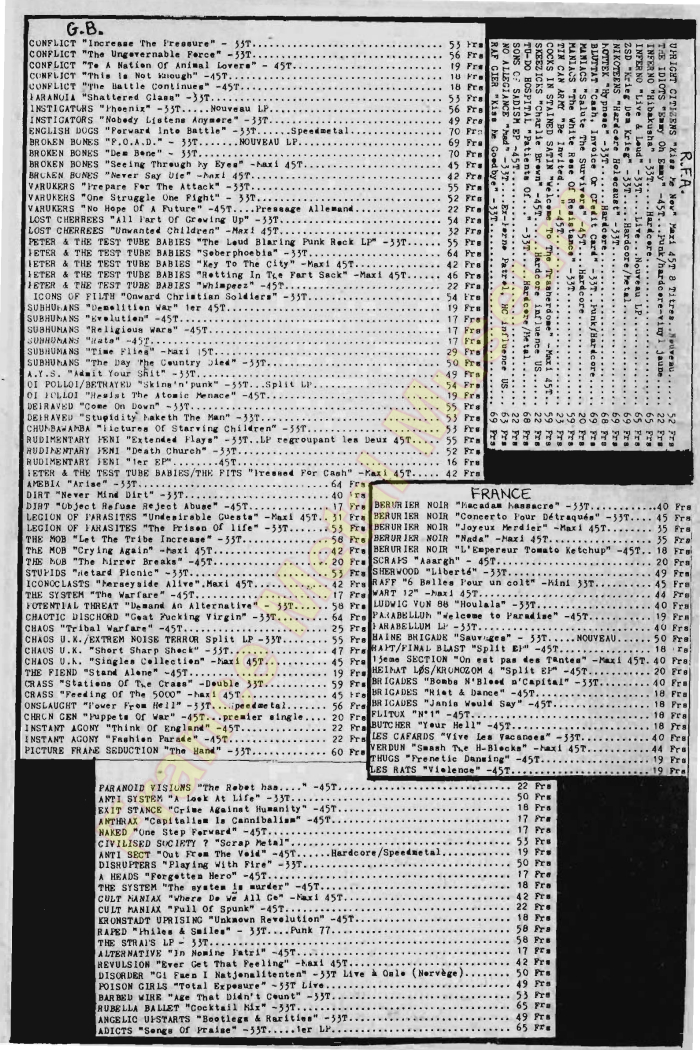 G.B.
CONFLICT "Increase The Pressure" - 33T.......... 53 Frs
CONFLICT "The Ungovernable Force" - 33T.......... 56 Frs
CONFLICT "To A Nation Of Animal Lovers" - 45T.......... 19 Frs
CONFLICT "This Is Not Enough" -45T.......... 18 Frs
CONFLICT "The Battle Continues" -45T.......... 18 Frs
PARANOIA "Shattered Glass" -33T.......... 53 Frs
INSTIGATORS "Phoenix".....Nouveau LP.......... 56 Frs
INSTIGATORS "Nobody Listens Anymore" -33T.......... 49 Frs
ENGLISH DOGS "Forward Into Battle" - 33T.......Speedmetal.......... 70 Frs
BROKEN BONES "F.O.A.D." - 33T.......NOUVEAU LP.......... 69 Frs
BROKEN BONES "Dem Bone" - 33T.......... 70 Frs
BROKEN BONES "Seeing Through My Eyes" -Maxi 45T.......... 45 Frs
BROKEN BONES "Never Say Die" -Maxi 45T.......... 42 Frs
VARUKERS "Prepare For The Attack" -33T.......... 55 Frs
VARUKERS "One Struggle One Fight" - 33T.......... 52 Frs
VARUKERS "No Hope Of A Future" -45T.....Pressage Allemand.......... 22 Frs
LOST CHERREES "All Part Of Growing Up" -33T.......... 54 Frs
LOST CHERREES "Unwanted Children" -Maxi 45T.......... 32 Frs
PETER & THE TEST TUBE BABIES "The Loud Blaring Punk Rock LP" -33T.......... 55 Frs
PETER & THE TEST TUBE BABIES "Soberphobia" -33T.......... 64 Frs
PETER & THE TEST TUBE BABIES "Key To The City" -Maxi 45T.......... 42 Frs
PETER & THE TEST TUBE BABIES "Rotting In The Fart Sack" -Maxi 45T.......... 46 Frs
PETER & THE TEST TUBE BABIES "Whimpeez" -45T.......... 22 Frs
ICONS OF FILTH "Onward Christian Soldiers" -33T.......... 54 Frs
SUBHUMANS "Demolition War" 1er 45T.......... 19 Frs
SUBHUMANS "Evolution" -45T.......... 17 Frs
SUBHUMANS "Religious Wars" -45T.......... 17 Frs
SUBHUMANS "Rats" -45T.......... 17 Frs
SUBHUMANS "Time Flies" -Maxi 45T.......... 29 Frs
SUBHUMANS "The Day The Country Died" -33T.......... 50 Frs
A.Y.S. "Admit Your Shit" -33T.......... 49 Frs
OI POLLOI/BETRAYED "Skins'n'punk" -33T...Split LP.......... 54 Frs
OI POLLOI "Resist The Atomic Menace" -45T.......... 19 Frs
DEPRAVED "Come On Down" -33T.......... 55 Frs
DEPRAVED "Stupidity Maketh The Man" -33T.......... 53 Frs
CHUMBAWAMBA "Pictures Of Starving Children" -33T.......... 53 Frs
RUDIMENTARY PENI "Extended Plays" -33T...LP regroupant les Deux 45T.......... 55 Frs
RUDIMENTARY PENI "Death Church" -33T.......... 52 Frs
RUDIMENTARY PENI "1er EP".....-45T.......... 16 Frs
PETER & THE TEST TUBE BABIES/THE FITS "Pressed For Cash" -Maxi 45T.......... 42 Frs
AMEBIX "Arise" -33T.......... 64 Frs
DIRT "Never Mind Dirt" -33T.......... 40 Frs
DIRT "Object Refuse Reject Abuse" -45T.......... 17 Frs
LEGION OF PARASITES "Undesirable Guests" -Maxi 45T.. 31 Frs
LEGION OF PARASITES "The Prison Of life" -33T.......... 53 Frs
THE MOB "Let The Tribe Increase" -33T.......... 58 Frs
THE MOB "Crying Again" -Maxi 45T.......... 42 Frs
THE MOB "The Mirror Breaks" -45T.......... 20 Frs
STUPIDS "Retard Picnic" -33T.......... 53 Frs
ICONOCLASTS "Merseyside Alive".Maxi 45T.......... 42 Frs
THE SYSTEM "The Warfare" -45T.......... 17 Frs
POTENTIAL THREAT "Demand An Alternative" - 33T.......... 58 Frs
CHAOTIC DISCHORD "Goat Fucking Virgin" -33T.......... 64 Frs
CHAOS "Tribal Warfare" -45T.......... 25 Frs
CHAOS U.K./EXTREM NOISE TERROR Split LP -33T.......... 55 Frs
CHAOS U.K. "Short Sharp Shock" -33T.......... 47 Frs
CHAOS U.K. "Singles Collection" -Maxi 45T.......... 45 Frs
THE FIEND "Stand Alone" -45T.......... 19 Frs
CRASS "Stations Of The Crass" -Double 33T.......... 59 Frs
CRASS "Feeding Of The 5000" -Maxi 45T.......... 45 Frs
ONSLAUGHT "Power From Hell" -33T.....Speedmetal.......... 56 Frs
CHRON GEN "Puppets Of War" -45T...premier single.... 20 Frs
INSTANT AGONY "Think Of England" -45T.......... 22 Frs
INSTANT AGONY "Fashion Parade" -45T.......... 22 Frs
PICTURE FRAME SEDUCTION "The Hand" -33T.......... 60 Frs
R.F.A.
UPRIGHT CITIZENS "Kiss Me Now" Maxi 45T 8 Titres..Nouveau. 52 Frs
THE IDIOTS "Emmy Oh Emmy" -45T...Punk/Hardcore-vinyl jaune 22 Frs
INFERNO "Hibakusha" -33T.....Hardcore.
INFERNO "Live & Loud" -33T...Live..Nouveau LP
2SD "Krieg Dem Krieg" -33T...Hardcore/Metal
NIKOTEENS "Hardcore Holocauset" -33T
HOSTTEK Hypnose -33T...Hardcore
BLUTTAT "Cash, Invoice Or Credit Card" -33T..Punk/Hardcore.
MANIACS "Salute The Survivors" -45T..Hardcore
MANIACS "The White Rose Of Resistance" -33T
TIN CAN ARMY "Has Invited..." -45T
COCKS IN STAINED SATIN "Welcome To The Trasherdome" -Maxi 45T
SKEEZICKS "Charlie Brown" -45T Hardcore influence US
TU-DO HOSPITAL "Patients Of..." -33T..Hardcore/Metal
SONS OF SADISM EP -45T
NO ALLEGIANCE "Mad" -33T...Ex-Terne Patrol HC influence US
RAF GIER "Kiss Me Goodbye" -33T.......... 69 Frs
FRANCE
BERURIER NOIR "Macadam Massacre" -33T.......... 40 Frs
BERURIER NOIR "Concerto Pour Détraqués" -33T.......... 45 Frs
BERURIER NOIR "Joyeux Merdier" -Maxi 45T.......... 35 Frs
BERURIER NOIR "Nada" -Maxi 45T.......... 35 Frs
BERURIER NOIR "L'Empereur Tomato Ketchup" -45T.. 18 Frs
SCRAPS "Aaargh" - 45T.......... 20 Frs
SHERWOOD "Liberté" -33T.......... 49 Frs
RAFF "6 Balles Pour un colt" -Mini 33T.......... 45 Frs
WART 12" -Maxi 45T.......... 44 Frs
LUDWIG VON 88 "Houlala" -33T.......... 40 Frs
PARABELLUM "Welcome to Paradise" -45T.......... 19 Frs
PARABELLUM LP -33T.......... 40 Frs
HAINE BRIGADE "Sauvages" - 33T.......NOUVEAU..... 50 Frs
RAPT/FINAL BLAST "Split EP" -45T.......... 18 Frs
13eme SECTION "On est pas des Tantes" -Maxi 45T. 40 Frs
HEIMAT LØS/KROMOZOM 4 "Split EP" -45T.......... 20 Frs
BRIGADES "Bombs N'Blood n'Capital" -33T.......... 40 Frs
BRIGADES "Riot & Dance" -45T.......... 18 Frs
BRIGADES "Janis Would Say" -45T.......... 18 Frs
FLITOX "N°1" -45T.......... 18 Frs
BUTCHER "Your Hell" -45T.......... 18 Frs
LES CAFARDS "Vive Les Vacances" -33T.......... 40 Frs
VERDUN "Smash The H-Blocks" -Maxi 45T.......... 44 Frs
THUGS "Frenetic Dansing" -45T.......... 19 Frs
LES RATS "Violence" -45T.......... 19 Frs
PARANOID VISIONS "The Robot has...." -45T.......... 22 Frs
ANTI SYSTEM "A Look At Life" -33T.......... 50 Frs
EXIT STANCE "Crime Against Humanity" -45T.......... 18 Frs
ANTHRAX "Capitalism Is Cannibalism" -45T.......... 17 Frs
NAKED "One Step Forward" -45T.......... 17 Frs
CIVILISED SOCIETY ? "Scrap Metal".......... 53 Frs
ANTI SECT "Out From The Void" -45T......Hardcore/Speedmetal.......... 19 Frs
DISRUPTERS "Playing With Fire" -33T.......... 50 Frs
A HEADS "Forgotten Hero" -45T.......... 17 Frs
THE SYSTEM "The system is murder" -45T.......... 18 Frs
CULT MANIAX "Where Do We All Go" -Maxi 45T.......... 42 Frs
CULT MANIAX "Full Of Spunk" -45T.......... 22 Frs
KRONSTADT UPRISING "Unknown Revolution" -45T.......... 18 Frs
RAPED "Philes & Smiles" - 33T.....Punk 77.......... 58 Frs
THE STRAPS LP - 33T.......... 58 Frs
ALTERNATIVE "In Nomine Patri" -45T.......... 17 Frs
REVULSION "Ever Get That Feeling" -Maxi 45T.......... 42 Frs
DISORDER "Gi Faen I Natjonalitenten" -33T Live à Oslo (Norvège)..... 50 Frs
POISON GIRLS "Total Exposure" -33T Live.......... 49 Frs
BARBED WIRE "Age That Didn't Count" -33T.......... 53 Frs
RUBELLA BALLET "Cocktail Mix" -33T.......... 65 Frs
ANGELIC UPSTARTS "Bootlegs & Rarities" -33T.......... 49 Frs
ADICTS "Songs Of Praise" -33T.....1er LP.......... 65 Frs